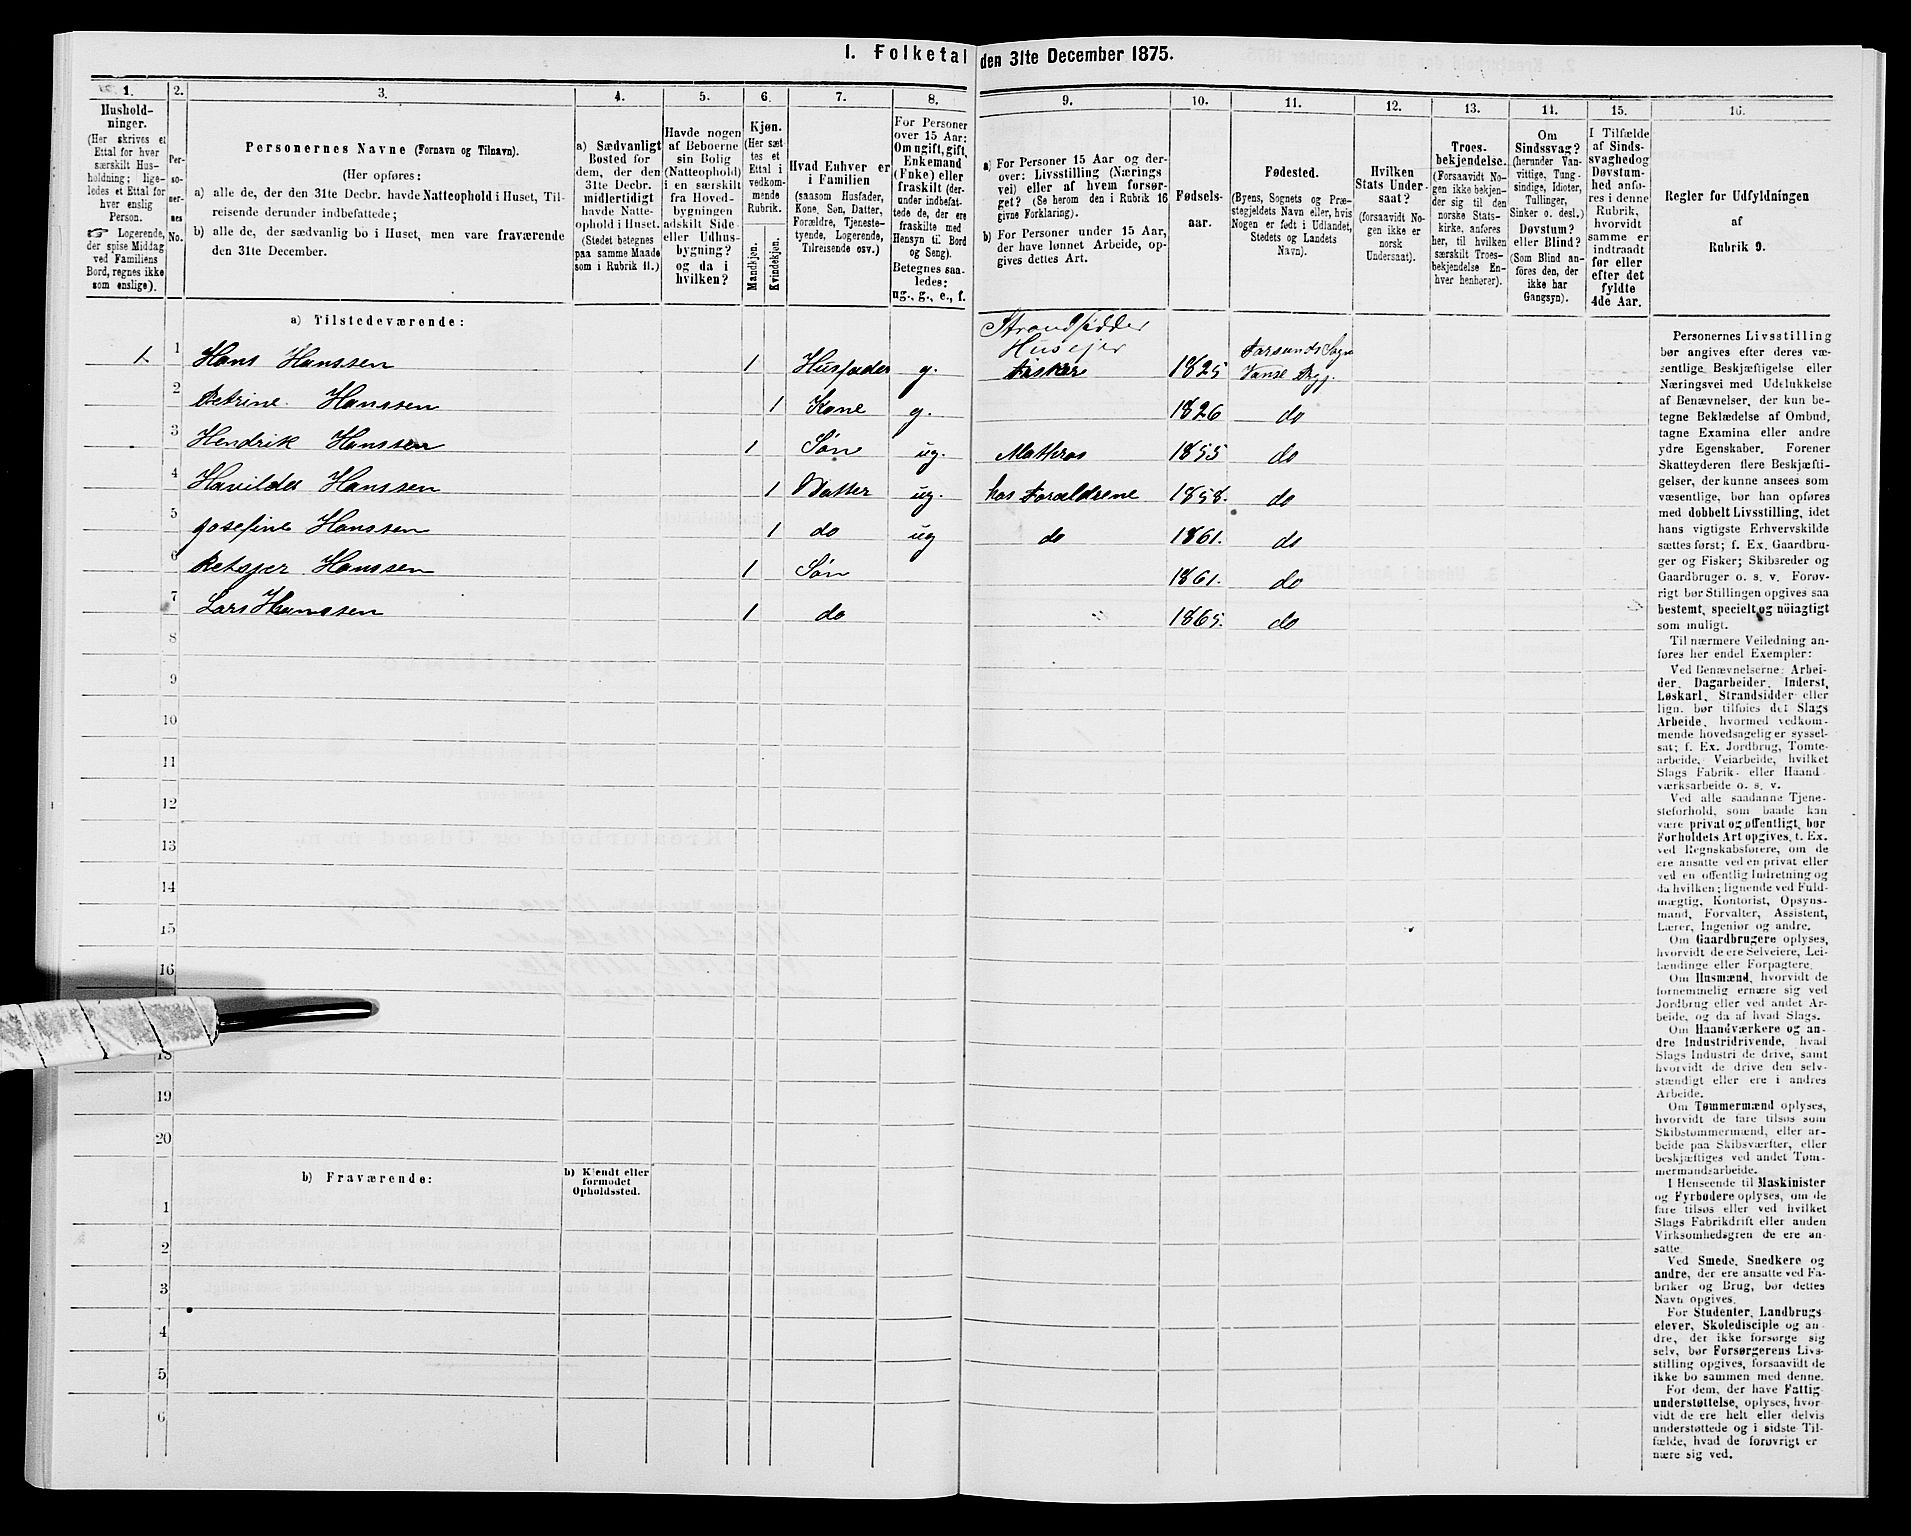 I. Folketal den 31te December 1875.
1. 2. 3. 4. 5. 6. 7. 8. 9. 10. 11. 12. 13. 14. 15. 16.
Hushold-
ninger.
(Her skrives et
Ettal for hver
særskilt Hus-
holdning; lige-
ledes et Ettal for
hver enslig
Person.
☞ Logerende,
der spise Middag
ved Familiens
Bord, regnes ikke
som enslige).
Per-
so-
ner-
nes
No.
Personernes Navne (Fornavn og Tilnavn).
(Her opføres:
a) alle de, der den 31te Decbr. havde Natteophold i Huset, Til-
reisende derunder indbefattede;
b) alle de, der sædvanlig bo i Huset, men vare fraværende
den 31te December.
a) Sædvanligt
Bosted for
dem, der den
31te Decbr.
midlertidigt
havde Natte-
ophold i Huset.
(Stedet betegnes
paa samme Maade
som i Rubrik 11.)
Havde nogen
af Beboerne
sin Bolig
(Natteophold)
i en særskilt
fra Hoved-
bygningen
adskilt Side-
eller Udhus-
bygning?
og da i
hvilken?
Kjøn.
(Her sæt-
tes et
Ettal i
vedkom-
mende
Rubrik.
Mandkjøn.
Kvindekjøn.
Hvad Enhver er
i Familien
(saasom Husfader,
Kone, Søn, Datter,
Forældre, Tjeneste-
tyende, Logerende,
Tilreisende osv.)
For Personer
over 15 Aar:
Om ugift, gift,
Enkemand
(Enke) eller
fraskilt (der-
under indbefat-
tede de, der ere
fraskilte med
Hensyn til Bord
og Seng).
Betegnes saa-
ledes:
ug., g., e., f.
a) For Personer 15 Aar og der-
over: Livsstilling (Nærings
vei) eller af hvem forsør-
get? (Se herom den i Rubrik 16
givne Forklaring).
b) For Personer under 15 Aar,
der have lønnet Arbeide, op-
gives dettes Art.
Fødsels-
aar.
Fødested.
(Byens, Sognets og Præ-
stegjeldets Navn eller, hvis
Nogen er født i Udlandet,
Stedets og Landets
Navn).
Hvilken
Stats Under-
saat?
(forsaavidt No-
gen ikke er
norsk
Undersaat).
Troes-
bekjendelse.
(Forsaavidt No-
gen ikke bekjen-
der sig til den
norske Stats-
kirke, anføres
her, til hvilken
særskilt Troes-
bekjendelse En-
hver henhører).
Om
Sindssvag?
(herunder Van-
vittige, Tung-
sindige, Idioter,
Tullinger,
Sinker o. desl.)
Døvstum?
eller Blind?
(Som Blind an-
føres den, der
ikke har
Gangsyn).
I Tilfælde
af Sinds-
svaghed og
Døvstum-
hed anfø-
res i denne
Rubrik,
hvorvidt
samme er
indtraadt
før eller
efter det
fyldte
4de Aar.
Regler for Udfyldningen
af
Rubrik 9.
a) Tilstedeværende:
Strandsidder
Husejer
1 1 Hans Hanssen 1 Husfader g. Fisker 1825 Farsunds Sogn Vanse Prgj.
2 Petrine Hanssen 1 Kone g. 1826 do
3 Hendrik Hanssen 1 Søn ug. Mathros 1855 do
4 Havilda Hanssen 1 Datter ug. hos Forældrene 1858. do
5 Josefine Hanssen 1 do ug do 1861. do
6 Hanssen 1 Søn 1861. do
7 Lars Hanssen 1 do 1865. do
8
9
10
11
12
13
14
15
16
18
19
20
b) Fraværende:
b) Kjendt eller
formodet
Opholdssted.
1
2
3
4
5
6
Personernes Livsstilling
bør angives efter deres væ-
sentlige Beskjæftigelse eller
Næringsvei med Udelukkelse
af Benævnelser, der kun be-
tegne Beklædelse af Ombud,
tagne Examina eller andre
ydre Egenskaber. Forener
Skatteyderen flere Beskjæfti-
gelser, der kunne ansees som
væsentlige, bør han opføres
med dobbelt Livsstilling, idet
hans vigtigste Erhvervskilde
sættes først; f. Ex. Gaardbru-
ger og Fisker; Skibsreder og
Gaardbruger o. s. v. Forøv-
rigt bør Stillingen opgives saa
bestemt, specielt og nöiagtigt
som muligt.
Til nærmere Veiledning an-
føres her endel Exempler:
Ved Benævnelserne: Arbei-
der, Dagarbeider, Inderst,
Løskarl, Strandsidder eller
lign. bør tilføies det Slags
Arbeide, hvormed vedkom-
mende hovedsagelig er syssel-
sat; f. Ex. Jordbrug, Tomte-
arbeide, Veiarbeide, hvilket
Slags Fabrik- eller Haand-
værksarbeide o. s. v.
Ved alle saadanne Tjene-
steforhold, som baade kan
være privat og offentligt, bør
Forholdets Art opgives, t. Ex.
ved Regnskabsførere, om de
ere ansatte ved en privat eller
ved en offentlig Indretning og
da hvilken; lignende ved Fuld-
mægtig, Kontorist, Opsyns-
mand, Forvalter, Assistent,
Lærer, Ingeniør og andre.
Om Gaardbrugere oplyses,
hvorvidt de ere Selveiere, Lei-
lændinge eller Forpagtere.
Om Husmænd, hvorvidt de
fornemmelig ernære sig ved
Jordbrug eller ved andet Ar-
beide, og da af hvad Slags.
Om Haandværkere og an-
dre Industridrivende, hvad
Slags Industri de drive, samt
hvorvidt de drive den selv-
stændigt eller ere i andres
Arbeide.
Om Tømmermænd oplyses,
hvorvidt de fare tilsøs som
Skibstømmermænd, eller ar-
beide paa Skibsværfter, eller
beskjæftiges ved andet Tøm-
mermandsarbeide.
I Henseende til Maskinister
og Fyrbødere oplyses, om de
fare tilsøs eller ved hvilket
Slags Fabrikdrift eller anden
Virksomhedsgren de ere an-
satte.
Ved Smede, Snedkere og
andre, der ere ansatte ved Fa-
briker og Brug, bør dettes
Navn opgives.
For Studenter, Landbrugs-
elever, Skoledisciple og an-
dre, der ikke forsørge sig
selv, bør Forsørgerens Livs-
stilling opgives, forsaavidt de
ikke bo sammen med denne.
For dem, der have Fattig-
understøttelse, oplyses, hvor-
vidt de ere helt eller delvis
understøttede og i sidste Til-
fælde, hvad de forøvrigt er
nære sig ved.